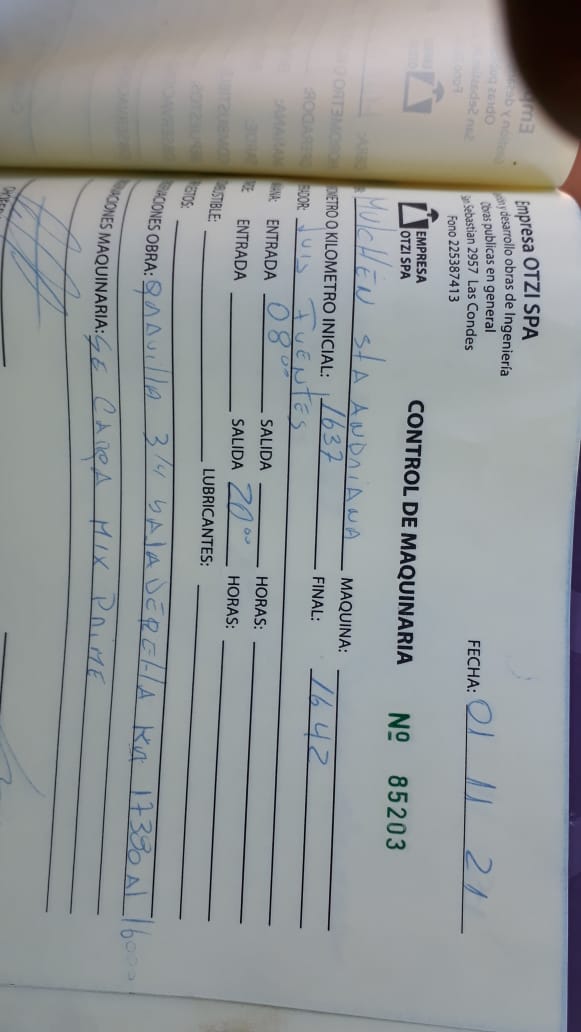 Empresa OTZI SPA
y desarrollo obras de Ingeniería
Obras publicas en general
San Sebastian 2957 Las Condes
Fono 225387413
EMPRESA
OTZI SPA
FECHA: 01 11 21
CONTROL DE MAQUINARIA Nº 85203
MULCHÉN StA ANDRIANA MAQUINA:
METRO O KILOMETRO INICIAL: 1637 FINAL: 1642
RADOR: LUIS FUENTES
ÑANA: ENTRADA 08⁰⁰ SALIDA HORAS:
RDE: ENTRADA SALIDA 20⁰⁰ HORAS:
MBUSTIBLE: LUBRICANTES:
UESTOS:
ERVACIONES OBRA: GRAVILLA 3/4 BAJADERELLA KM 17380 AL 16000
RVACIONES MAQUINARIA: SE CARGA MIX PRIME
CHOFER